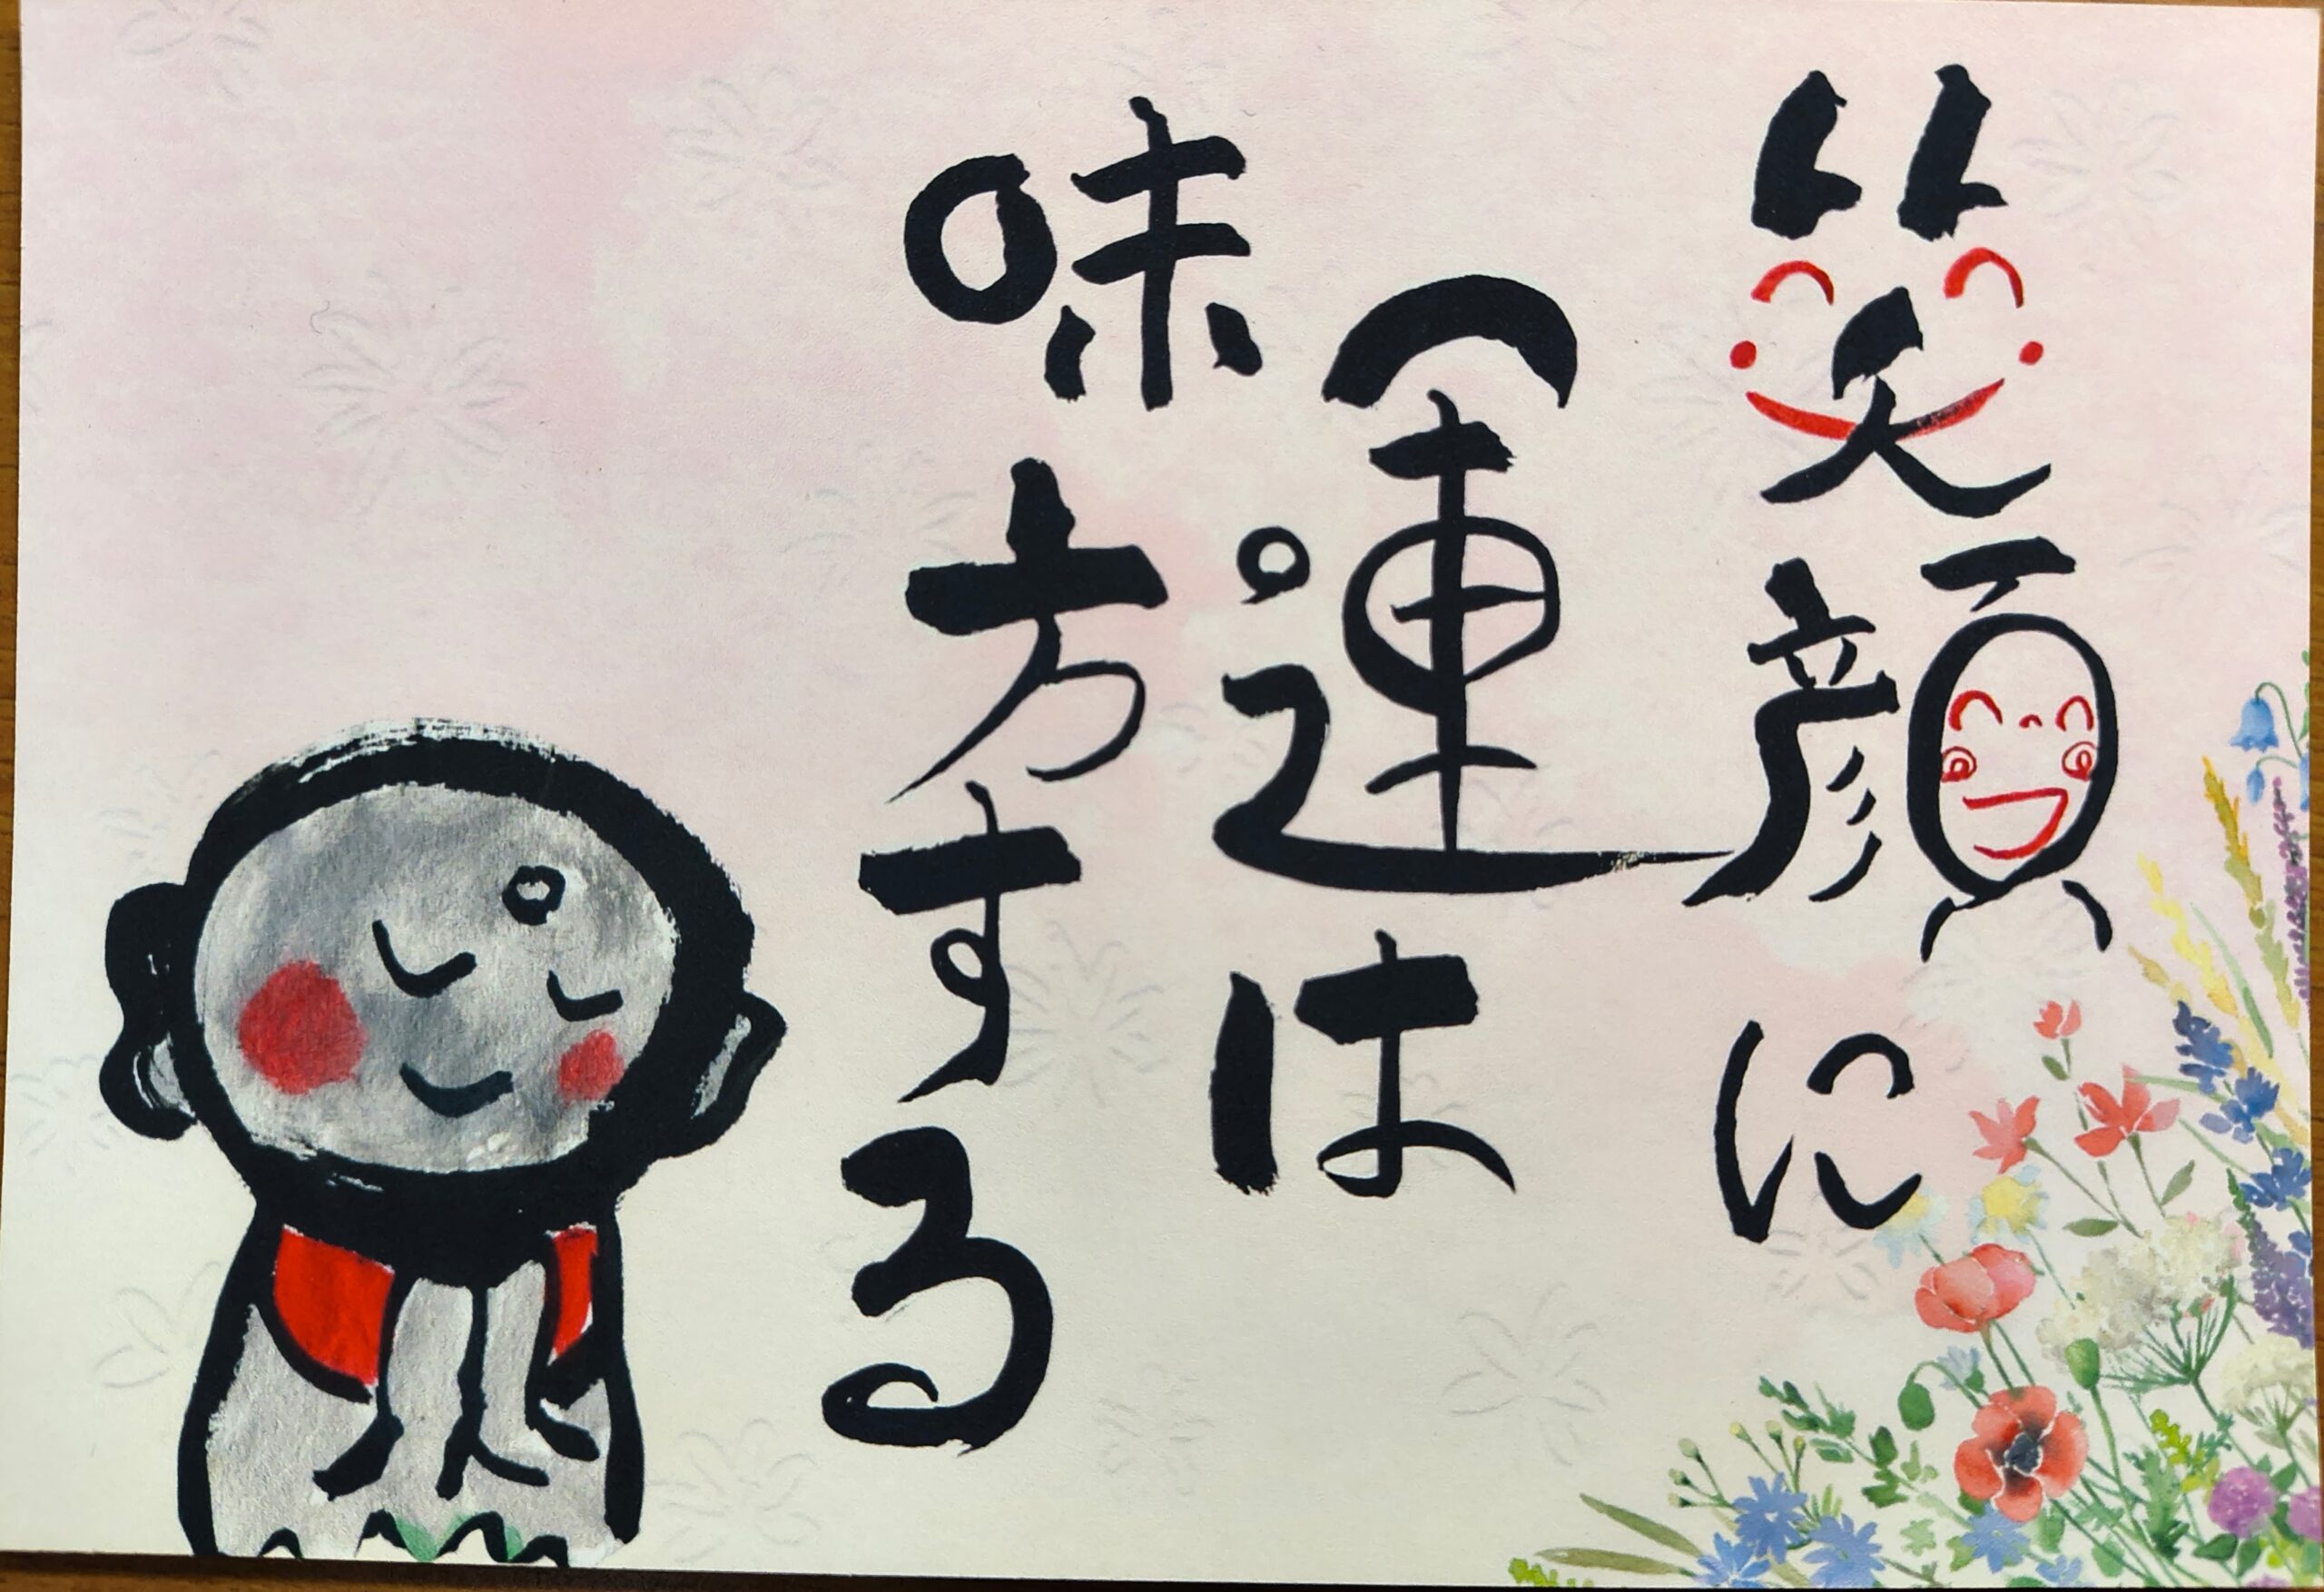 笑顔に
運は
味方する